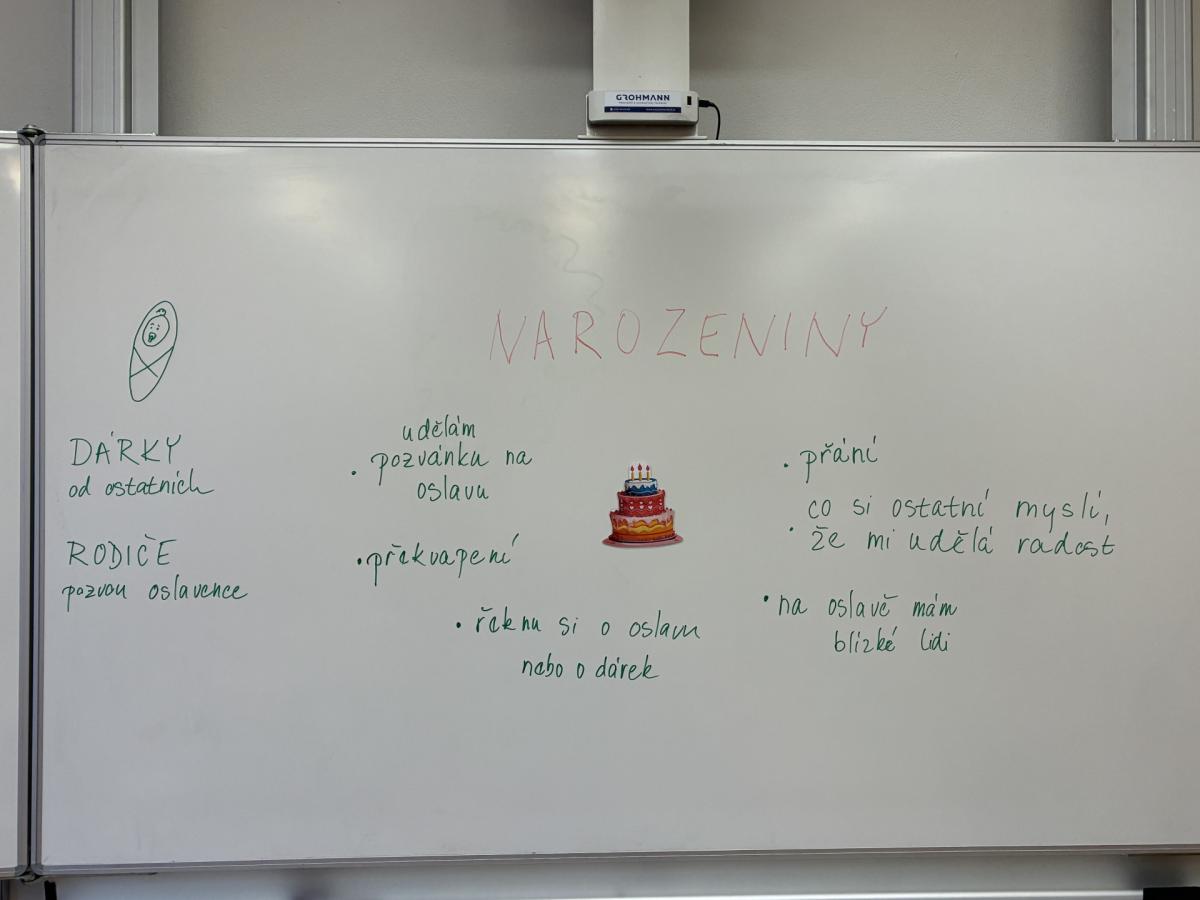 GROHMANN
NAROZENINY
DÁRKY
od ostatních
RODIČE
pozvou oslavence
udělám
• pozvánku na
oslavu
• překvapení
• řeknu si o oslavu
nebo o dárek
• přání
co si ostatní myslí,
• že mi udělá radost
• na oslavě mám
blízké lidi